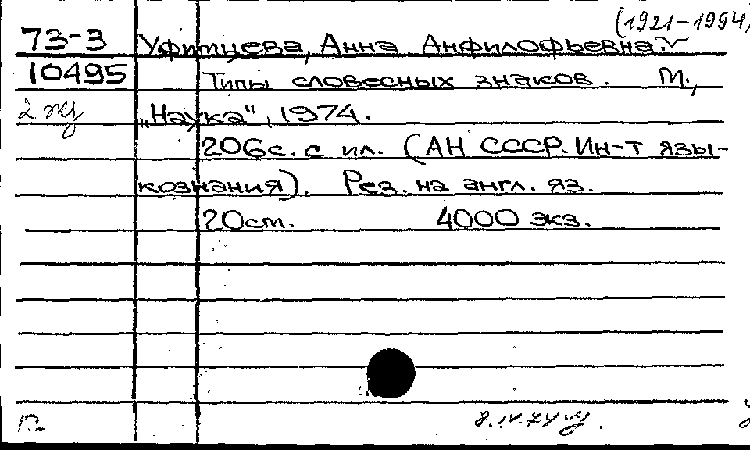 (1921-1994)
73-3 Уфимцева, Анна Анфилофьевна.
10495 Типы словесных знаков. М.,
2 экз „Наука", 1974.
206с. с ил. (АН СССР. Ин-т язы-
кознания). Рез. на англ. яз.
20см. 4000 экз.
8.IV.74